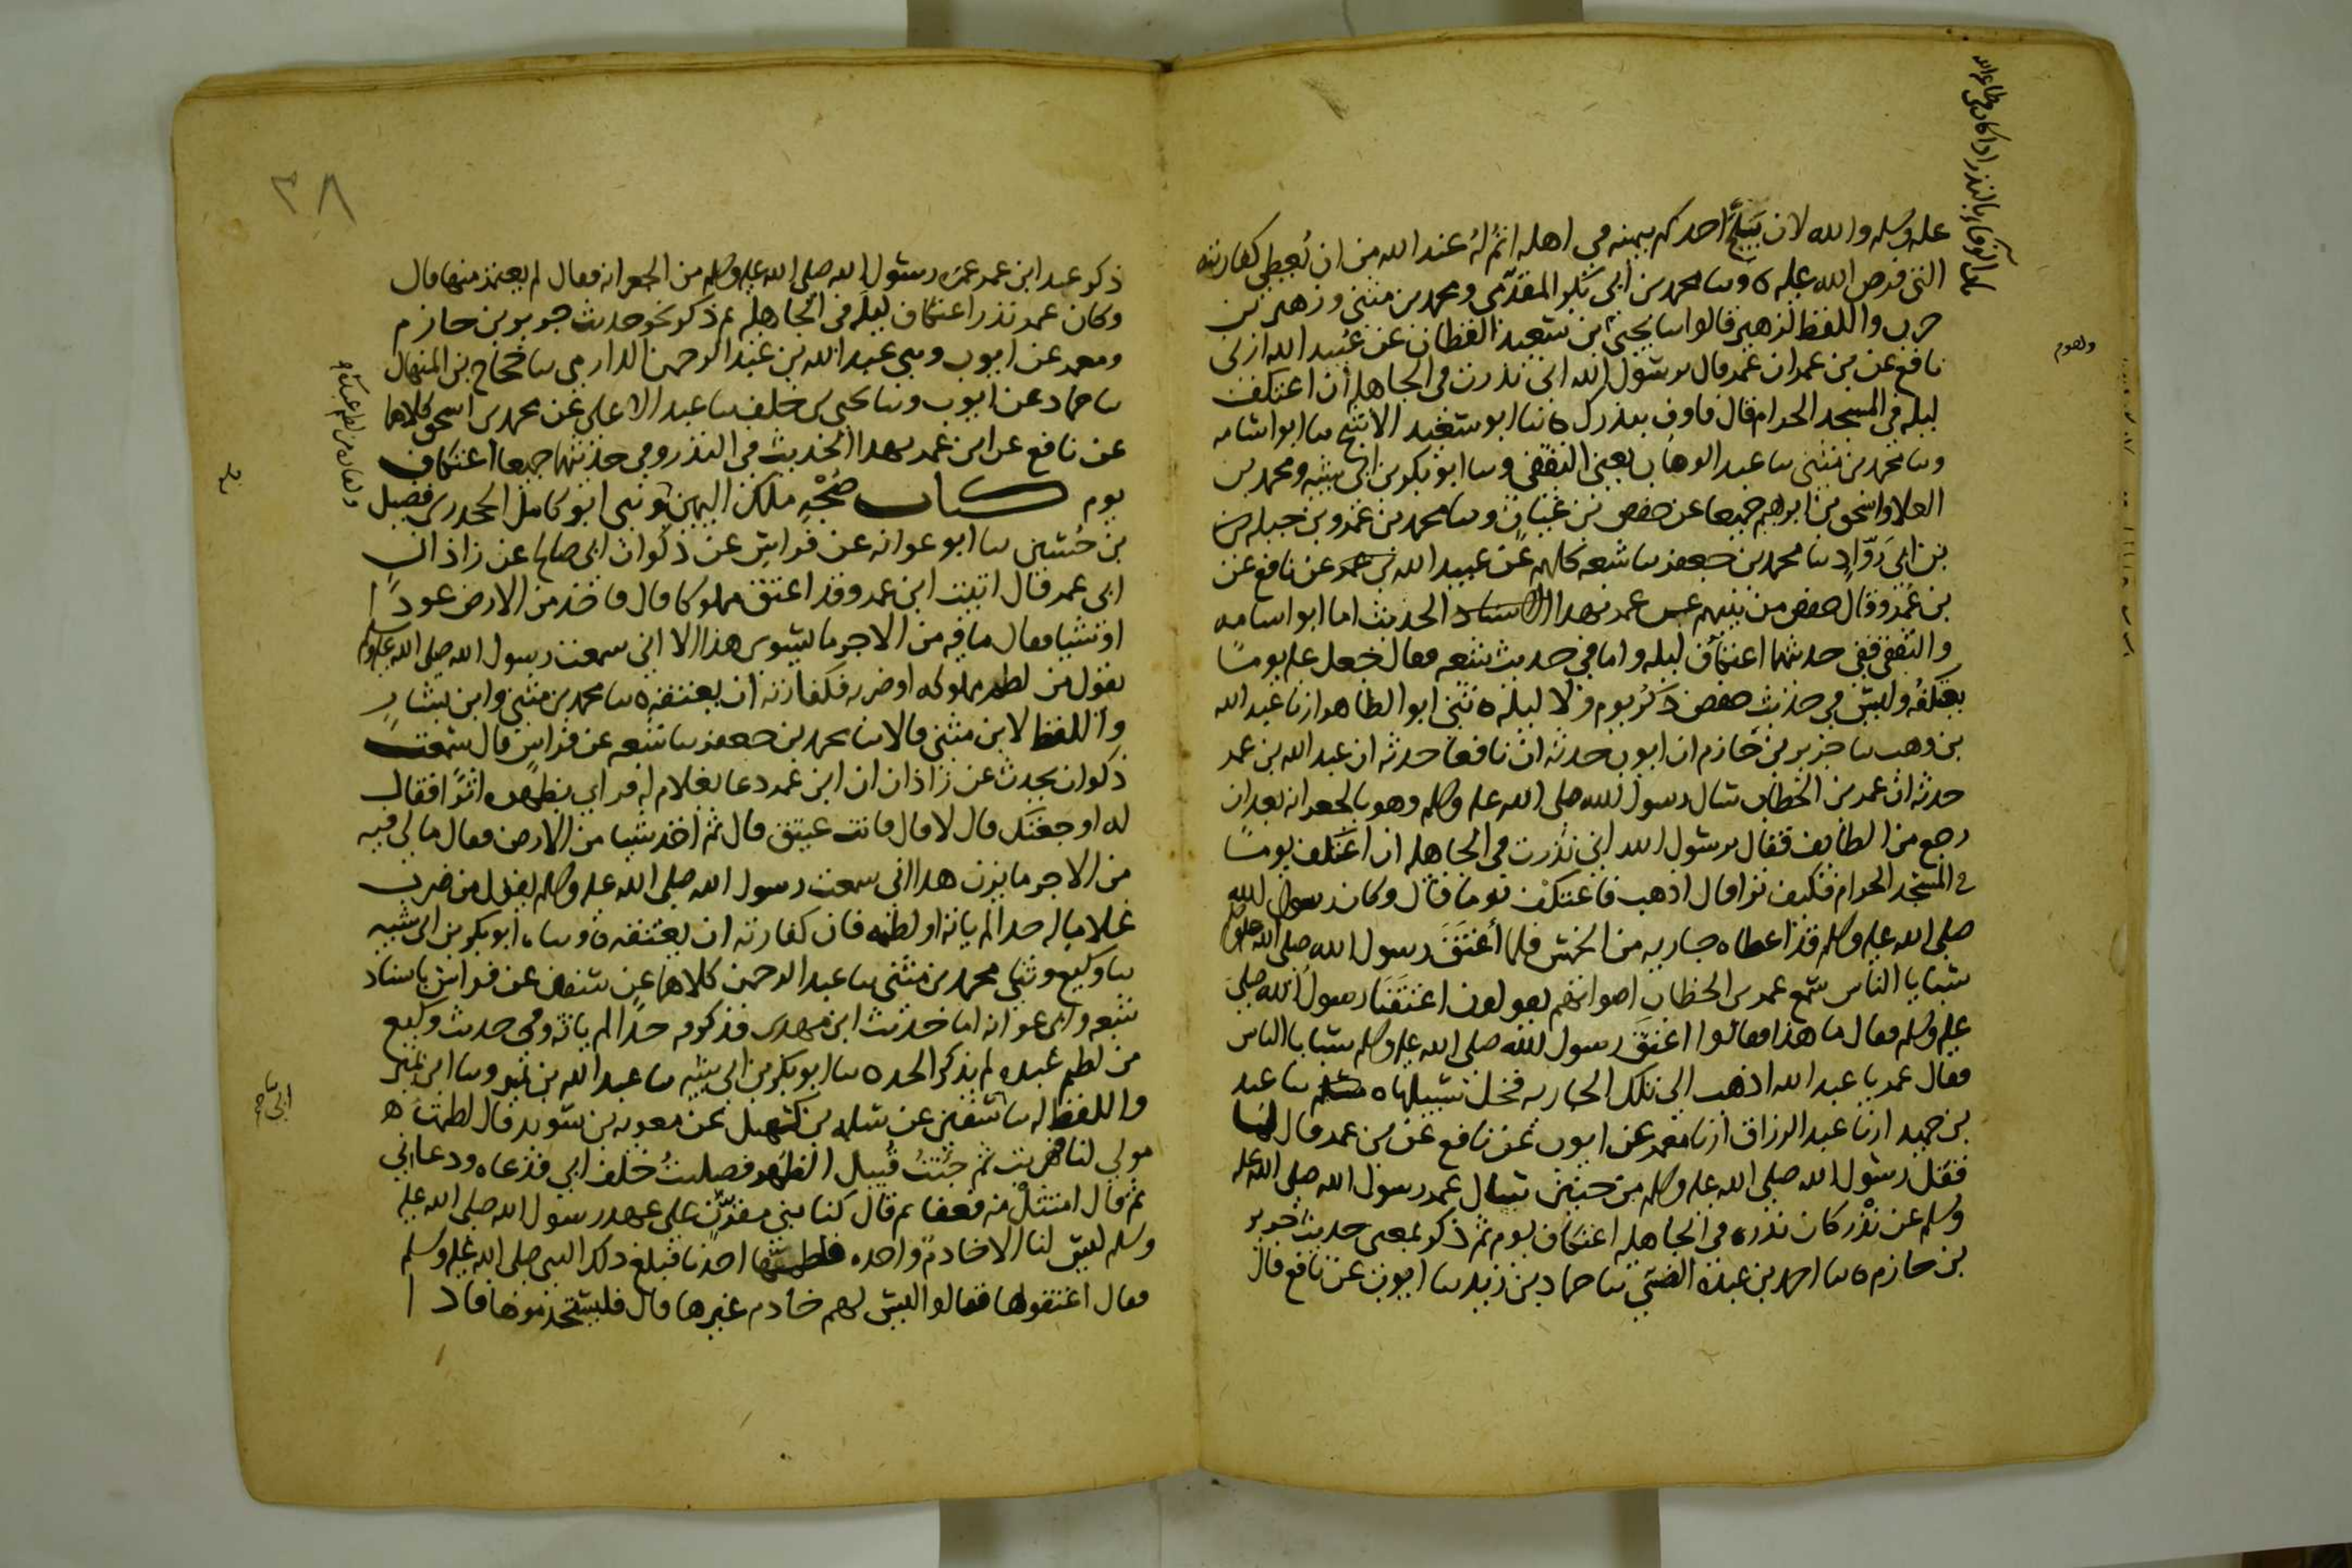 عليه وسلم والله لان يلج احدكم بيمينه في اهله اثم له عند الله من ان يعطي كفارته
التي فرض الله عليه ه وثنا محمد بن ابي بكر المقدمي ومحمد بن مثنى وزهير بن
حرب واللفظ لزهير قالوا ثنا يحيى بن سعيد القطان عن عبيد الله ارني
نافع عن بن عمر ان عمر قال يرسول الله اني نذرت في الجاهلية ان اعتكف
ليلة في المسجد الحرام قال فاوف بنذرك ه ثنا ابو سعيد الاشج ثنا ابو اسامه
وثنا محمد بن مثنى ثنا عبد الوهاب يعني الثقفي وثنا ابو بكر بن ابي شيبه ومحمد بن
العلا واسحق بن ابرهيم جميعا عن حفص بن غياث وثنا محمد بن عمرو بن جبله
بن ابي رواد ثنا محمد بن جعفر ثنا شعبه كلهم عن عبيد الله عن نافع عن
بن عمر وقال حفص من بينهم عن عمر بهذا الحديث اما ابو اسامه
والثقفي ففي حديثهما اعتكاف ليله واما في حديث شعبه فقال جعل عليه يوما
يعتكفه وليس في حديث حفص ذكر يوم ولا ليله ه ثني ابو الطاهر ارنا عبد الله
بن وهب ثنا جرير بن حازم ان ايوب حدثه ان نافعا حدثه ان عبد الله بن عمر
حدثه ان عمر بن الخطاب سال رسول الله صلى الله عليه وسلم وهو بالجعرانه بعد ان
رجع من الطايف فقال يرسول الله اني نذرت في الجاهليه ان اعتكف يوما
في المسجد الحرام فكيف ترا قال اذهب فاعتكف يوما قال وكان رسول الله
صلى الله عليه وسلم قد اعطاه جاريه من الخمس فلما اعتق رسول الله صلى الله عليه وسلم
سبايا الناس سمع عمر بن الخطاب اصواتهم يقولون اعتقنا رسول الله صلى
عليه وسلم فقال ما هذا فقالوا اعتق رسول الله صلى الله عليه وسلم سبايا الناس
فقال عمر يا عبد الله اذهب الى تلك الجاريه فخل سبيلها ه ثنا عبد
بن حميد ارنا عبد الرزاق ارنا معمر عن ايوب عن نافع عن بن عمر قال لما
قفل رسول الله صلى الله عليه وسلم من حنين سال عمر رسول الله صلى الله عليه
وسلم عن نذر كان نذره في الجاهلية اعتكاف يوم ثم ذكر بمعنى حديث جرير
بن حازم ه ثنا احمد بن عبدة الضبي ثنا حماد بن زيد ثنا ايوب عن نافع قال
٣٨
ذكر عند ابن عمر عمرة رسول الله صلى الله عليه وسلم من الجعرانه فقال لم يعتمر منها قال
وكان عمر نذر اعتكاف ليلة في الجاهلية ثم ذكر نحو حديث جرير بن حازم
ومعمر عن ايوب وثني عبد الله بن عبد الرحمن الدارمي ثنا حجاج بن المنهال
ثنا حماد عن ايوب وثنا يحيى بن خلف ثنا عبد الاعلى عن محمد بن اسحق كلاهما
عن نافع عن ابن عمر بهذا الحديث في النذر وفي حديثهما جميعا اعتكاف
يوم كتاب صحبة ملك اليمين ثني ابو كامل الجحدري فضيل
بن حسين ثنا ابو عوانه عن فراس عن ذكوان ابي صالح عن زاذان
ابي عمر قال اتيت ابن عمر وقد اعتق مملوكا قال فاخذ من الارض عودا
او شيا فقال ما فيه من الاجر ما يسوى هذا الا اني سمعت رسول الله صلى الله عليه وسلم
يقول من لطم مملوكه او ضربه فكفارته ان يعتقه ه ثنا محمد بن مثنى وابن بشار
واللفظ لابن مثنى قالا ثنا محمد بن جعفر ثنا شعبه عن فراس قال سمعت
ذكوان يحدث عن زاذان ان ابن عمر دعا بغلام له فراي بظهره اثرا فقال
له اوجعتك قال لا قال فانت عتيق قال ثم اخذ شيا من الارض فقال ما لي فيه
من الاجر ما يزن هذا اني سمعت رسول الله صلى الله عليه وسلم يقول من ضرب
غلاما له حدا لم ياته او لطمه فان كفارته ان يعتقه ه وثناه ابو بكر بن ابي شيبه
ثنا وكيع وثني محمد بن مثنى ثنا عبد الرحمن كلاهما عن سفين عن فراس باسناد
شعبه وابي عوانه اما حديث ابن مهدي فذكر فيه حدا لم ياته وفي حديث وكيع
من لطم عبده لم يذكر الحد ه ثنا ابو بكر بن ابي شيبه ثنا عبد الله بن نمير وثنا ابن نمير
واللفظ له ثنا سفين عن سلمه بن كهيل عن معويه بن سويد قال لطمت
مولى لنا فهربت ثم جئت قبيل الظهر فصليت خلف ابي فدعاه ودعاني
ثم قال امتثل منه فعفا ثم قال كنا بني مقرن على عهد رسول الله صلى الله عليه
وسلم ليس لنا الا خادم واحده فلطمها احدنا فبلغ ذلك النبي صلى الله عليه وسلم
فقال اعتقوها فقالوا ليس لهم خادم غيرها قال فليستخدموها فاذا